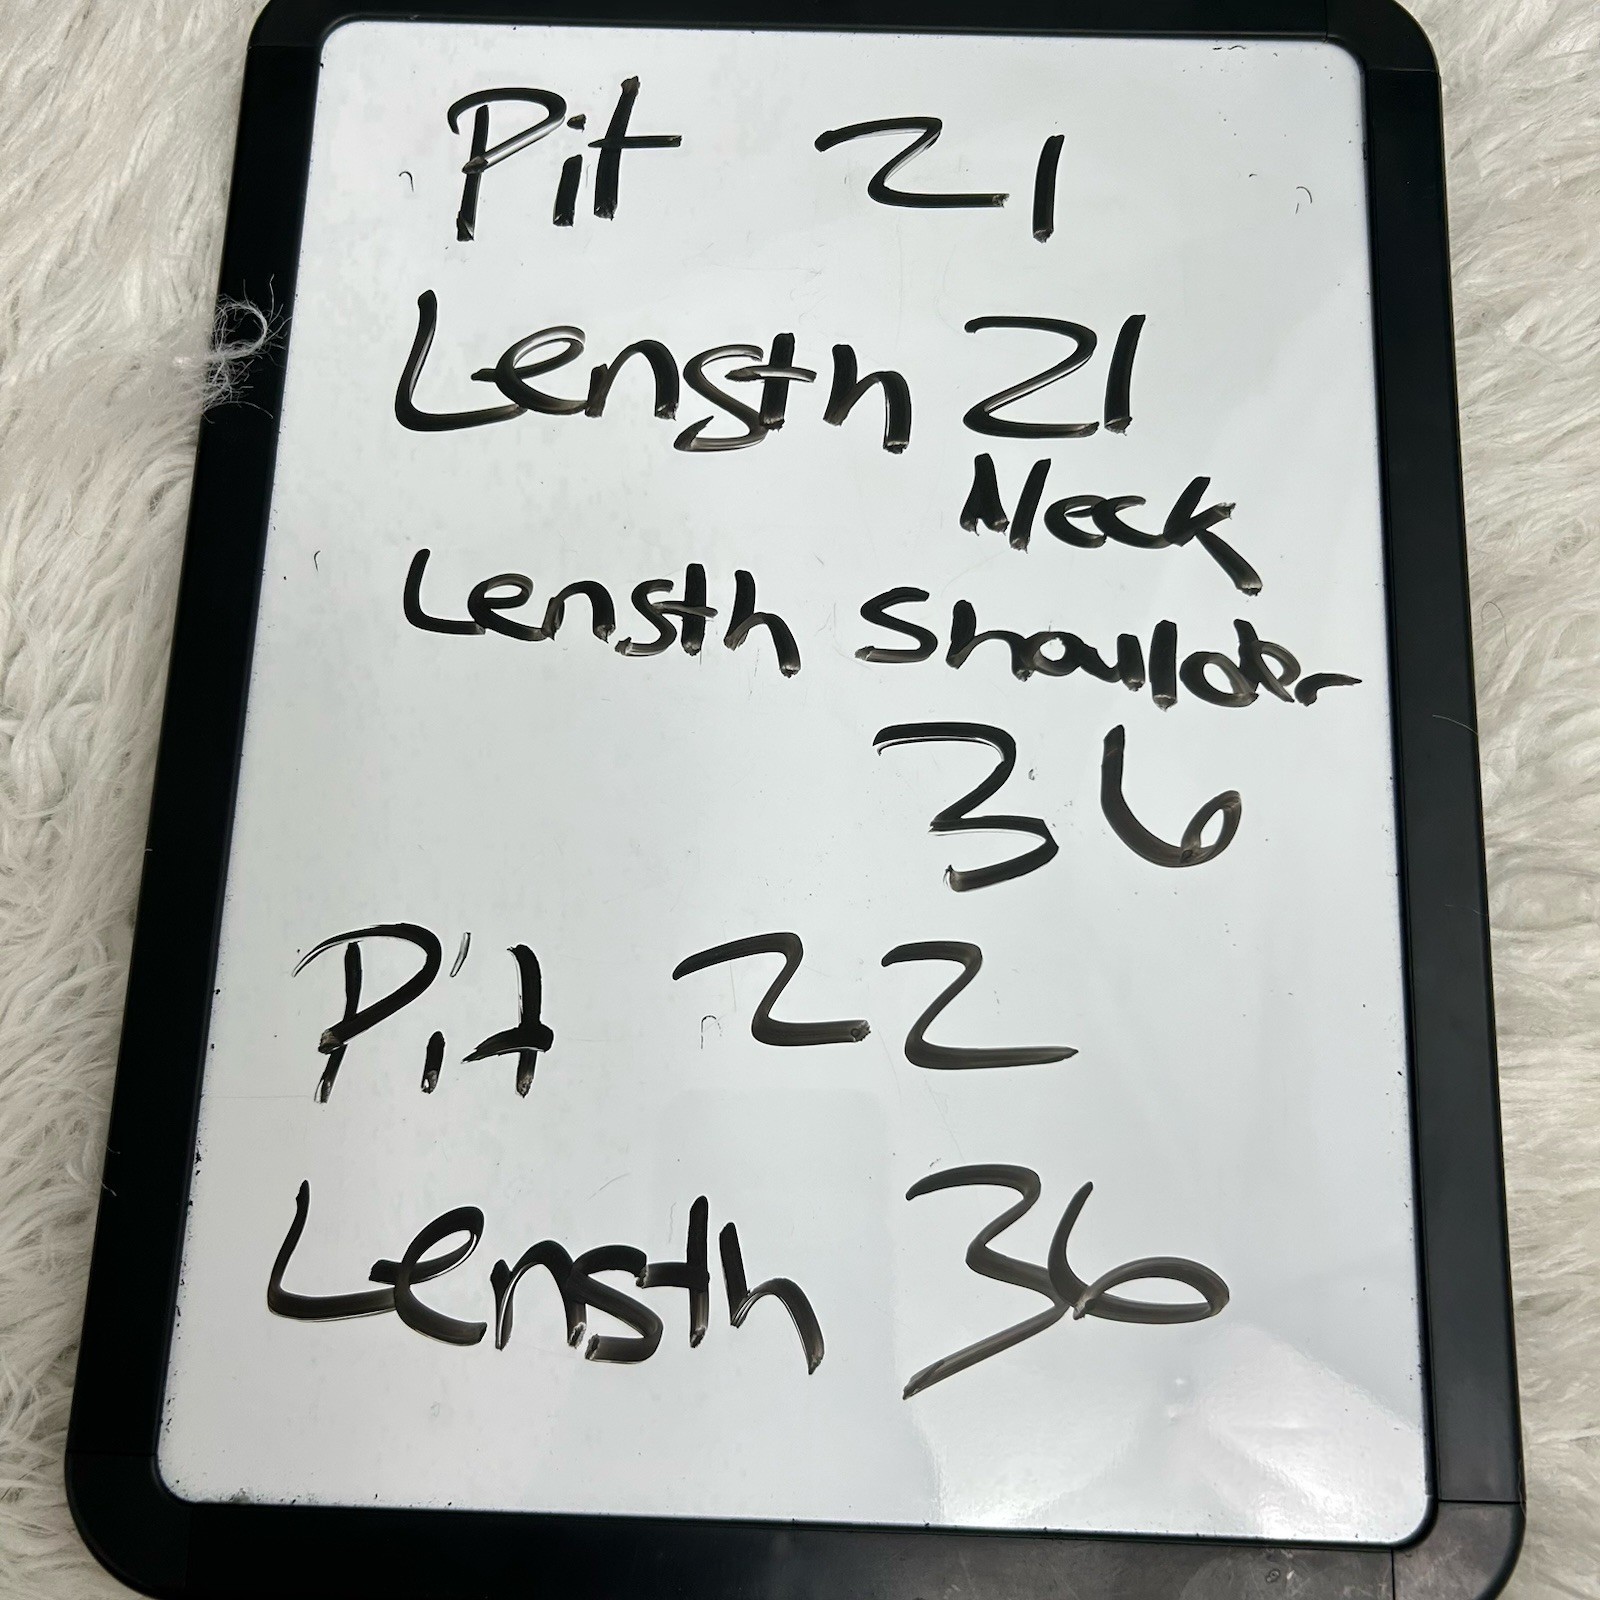 Pit 21
Length 21
Neck
Length Shoulder
36
Pit 22
Length 36